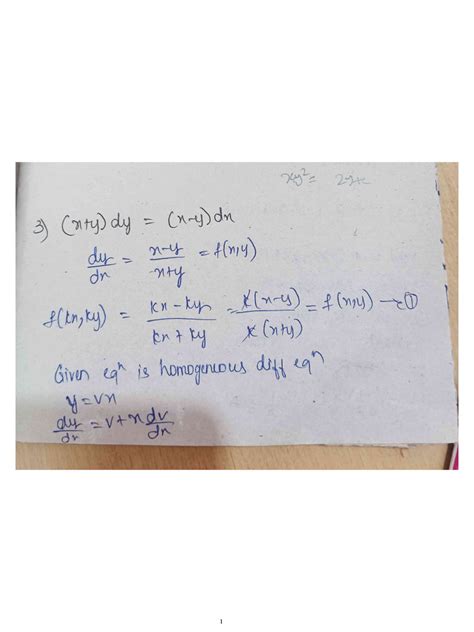 xy² = 2y+c
3) (x+y) dy = (x-y) dx
dy/dx = x-y/x+y = f(x,y)
f(kx,ky) = kx-ky/kx+ky = k(x-y)/k(x+y) = f(x,y) →①
Given eqⁿ is homogeneous diff eqⁿ
y = vx
dy/dx = v+x dv/dx
1